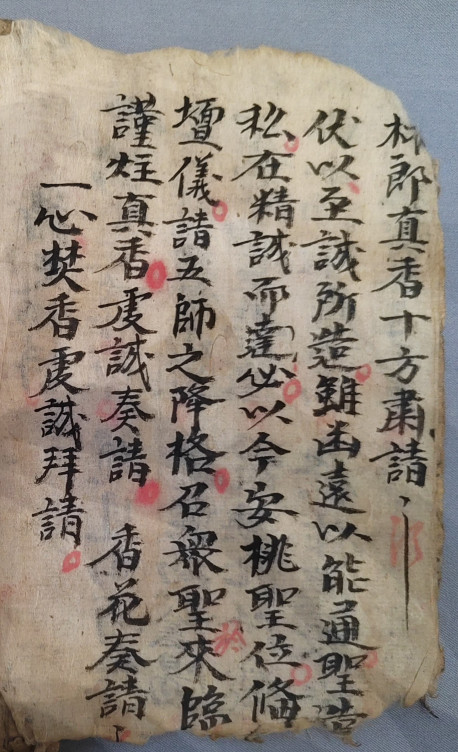 郎真香十方肅請
伏以至誠所造雖幽遠以能通聖造
私在精誠而達必以今安桃聖位俻
壇儀請五師之降格召眾聖來臨
謹炷真香虔誠奏請 香花奏請
一心焚香虔誠拜請